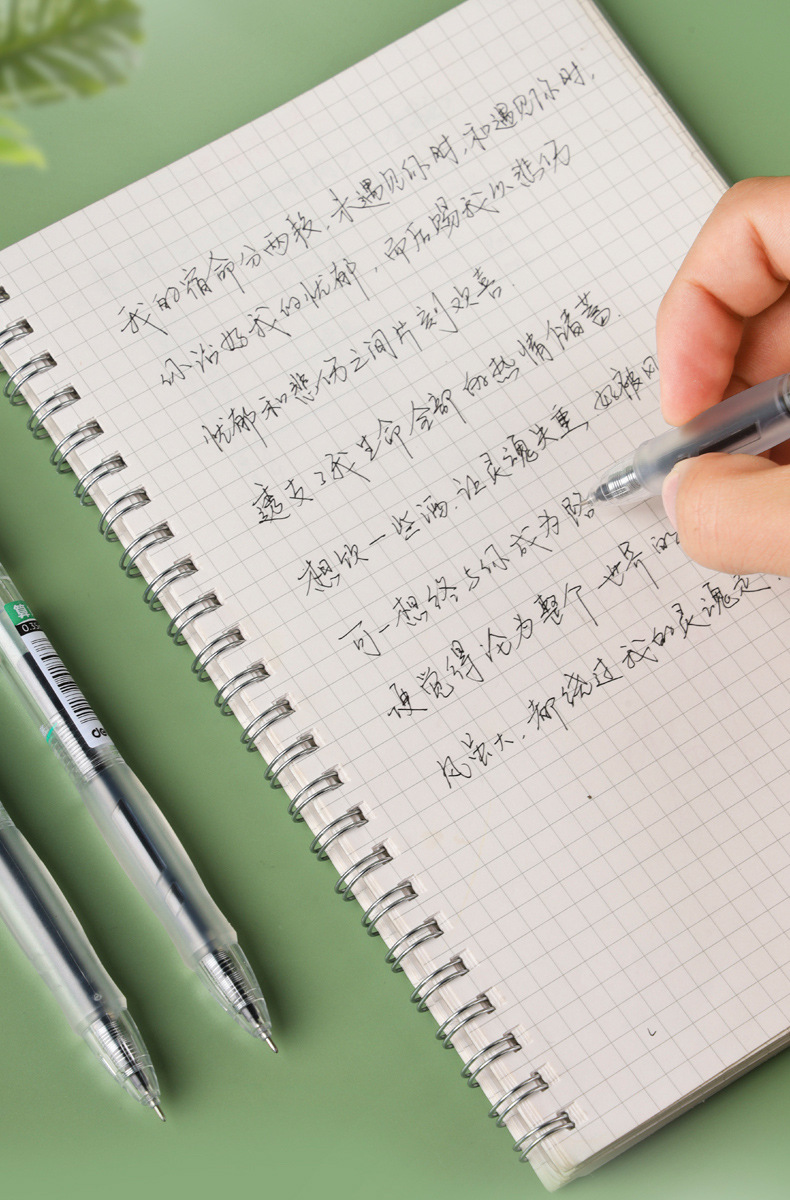 我的宿命分两段,未遇见你时,和遇见你时.
你治好我的忧郁,而后赐我以悲伤
忧郁和悲伤之间片刻欢喜.
透支了我生命全部的热情储蓄.
想饮一些酒.让灵魂失重,好被风
可一想终与你成为陌
便觉得沦为整个世界的
风虽大.都绕过我的灵魂走.
0.35
de